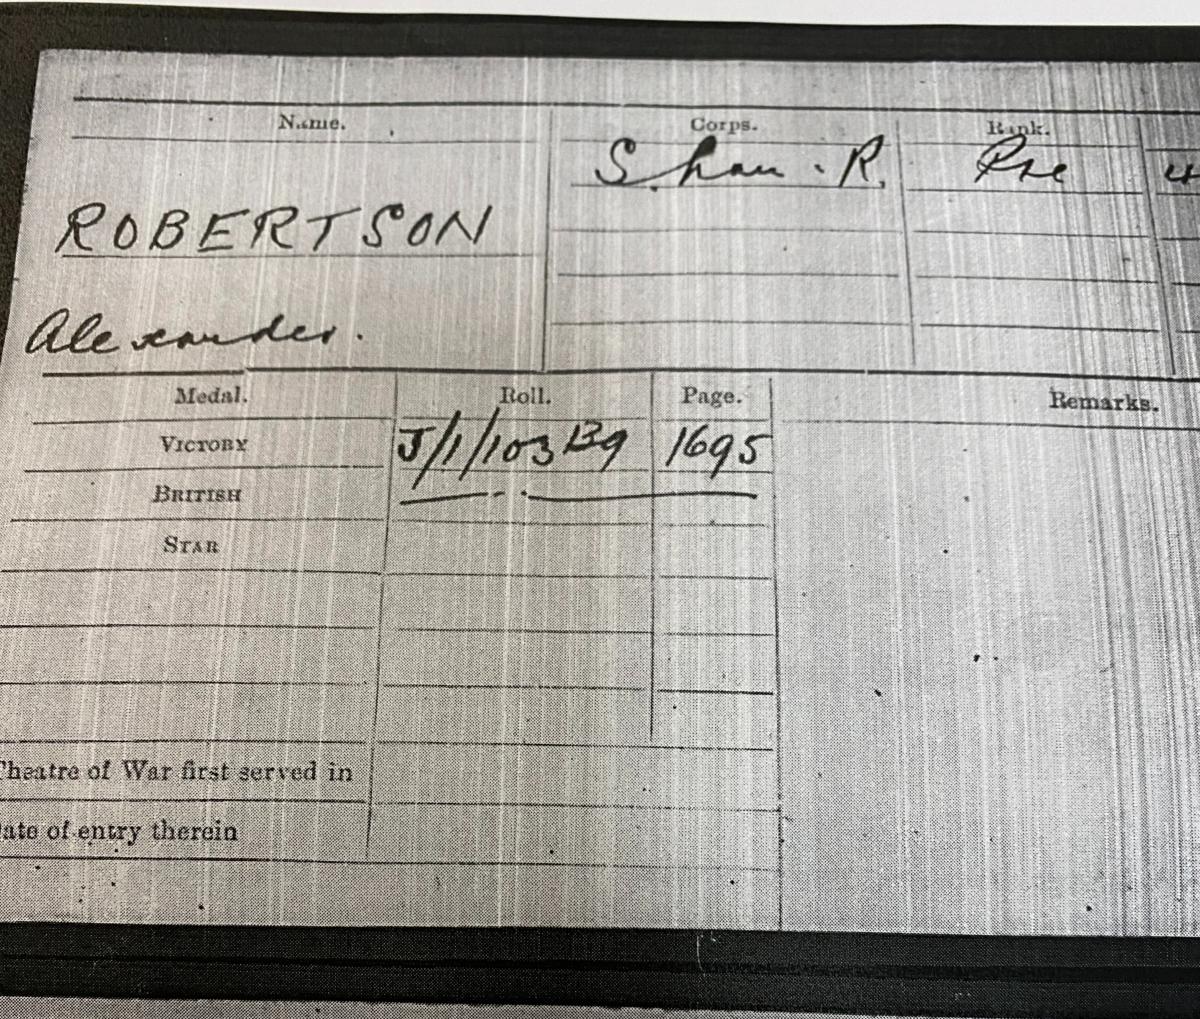 Name. Corps. Rank.
S. Lan. R. Pte 4
ROBERTSON
Alexander.
Medal. Roll. Page. Remarks.
VICTORY J/1/103 B9 1695
BRITISH
STAR
Theatre of War first served in
Date of entry therein